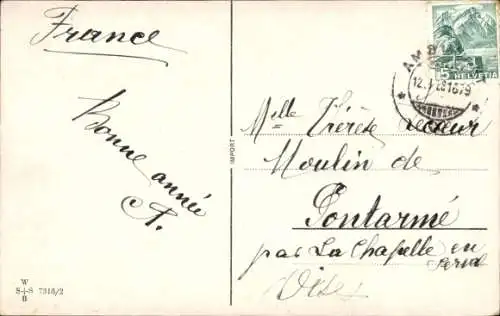 France
Bonne année
A.
W
S+S 7316/2
B
IMPORT
5 HELVETIA
Melle Thérèse Lecoeur
Moulin de
Pontarmé
par La Chapelle en
Serval
Oise